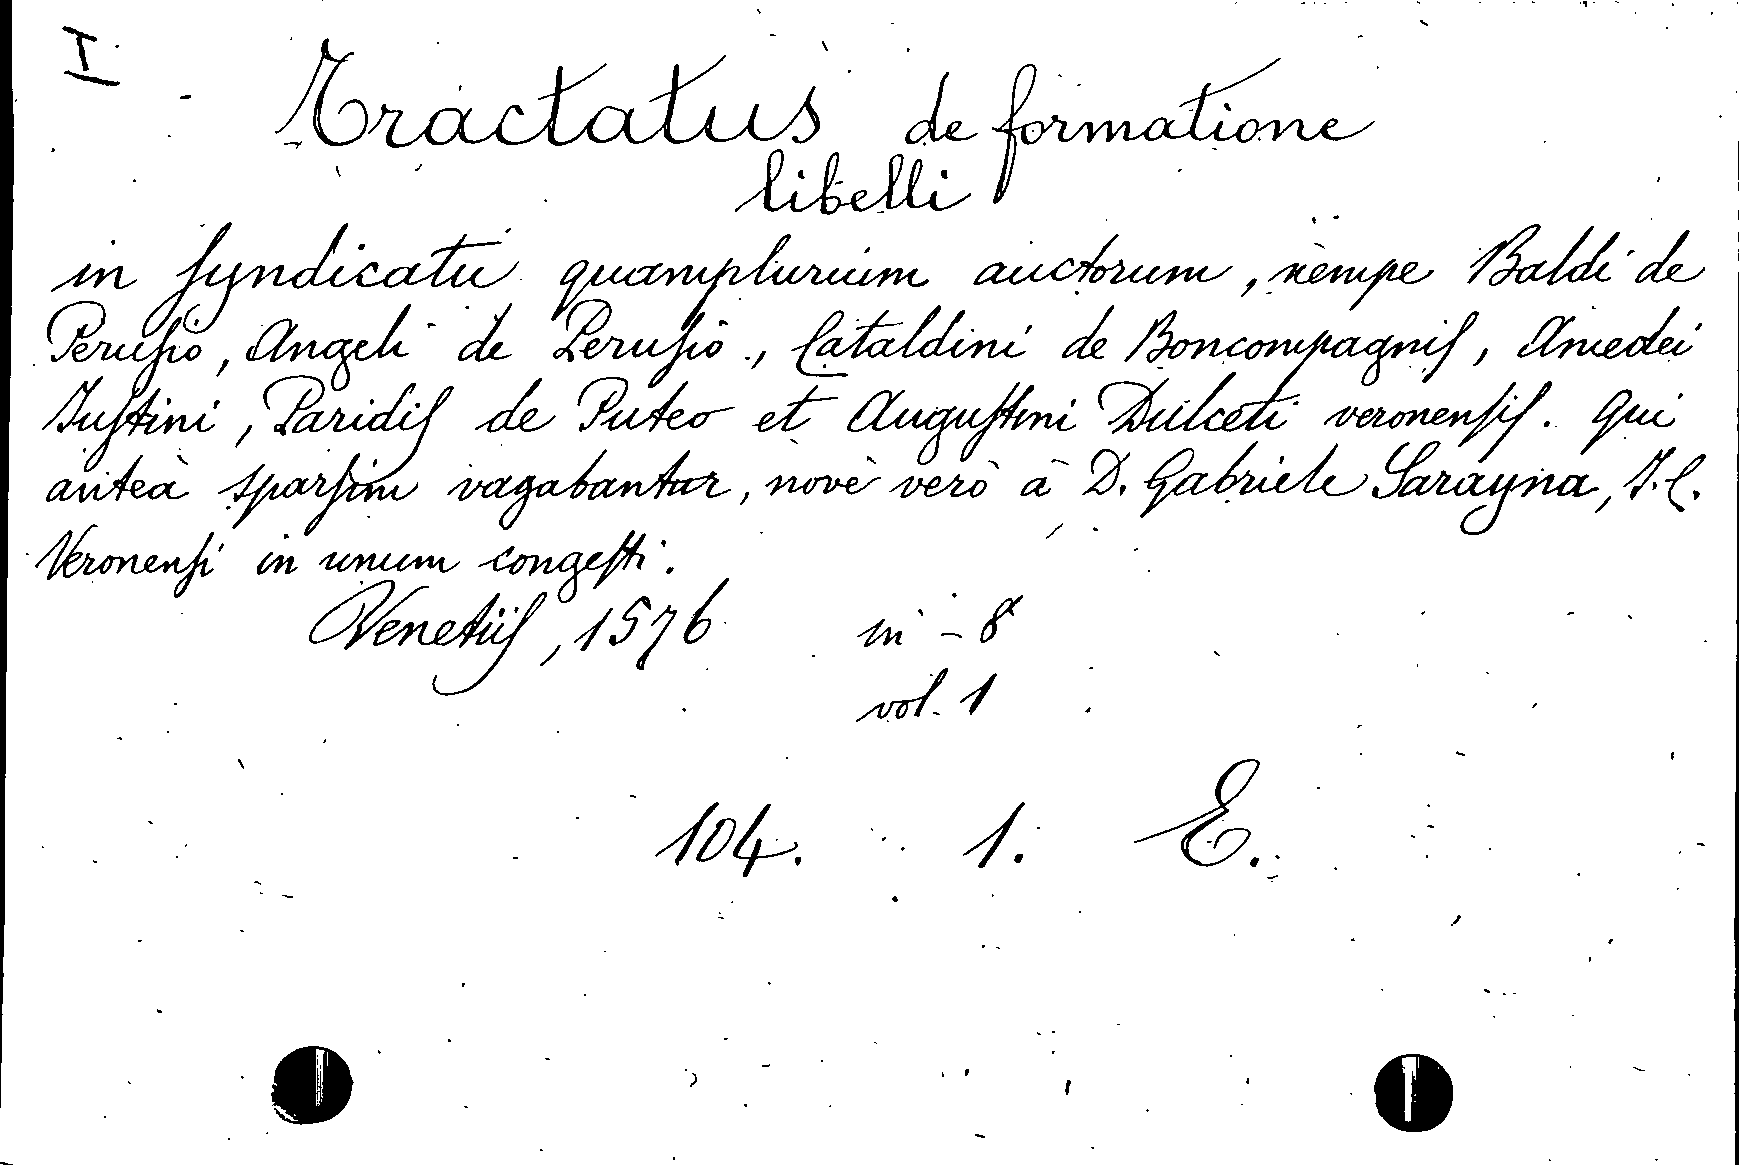 I
Tractatus de formatione
libelli
in syndicatu quamplurium auctorum, nèmpe Baldi de
Perusio, Angeli de Perusio, Cataldini de Boncompagnis, Amedei
Justini, Paridis de Puteo et Augustini Dulceti veronensis. Qui
anteà sparsim vagabantur, novè verò à D. Gabriele Sarayna, J.C.
Veronensi in unum congesti.
Venetiis, 1576 in-8
vol. 1
104. 1. E.